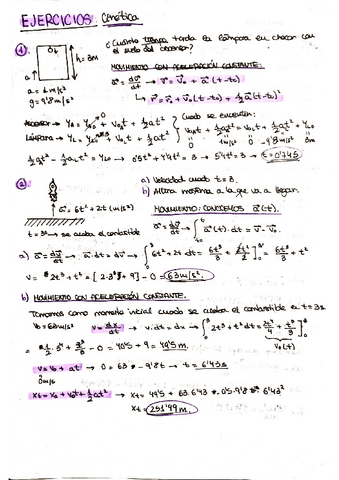 EJERCICIOS: Cinética
1) ¿Cuánto tiempo tarda la lámpara en chocar con
el suelo del ascensor?
h = 3m
a
a = 1 m/s²
g = 9'8 m/s²
MOVIMIENTO CON ACELERACIÓN CONSTANTE:
a = dv/dt → v = v₀ + a(t-t₀)
↳ r = r₀ + v₀(t-t₀) + ½a(t-t₀)²
Ascensor → y_A = y₀ + v₀t + ½at²
Lámpara → y_L = y₀ + v₀t + ½at²
Cuando se encuentran:
v₀t + ½at² = v₀t + ½at² + y₀
½at² - ½at² = y₀ → 0'5t² + 4'9t² = 3 → 5'4t² = 3 → t = 0'74s
2) a) Velocidad cuando t = 3.
b) Altura máxima a la que va a llegar.
a = 6t² + 2t (m/s²)
t = 3s → se acaba el combustible
MOVIMIENTO: CONOCEMOS a(t).
a = dv/dt → ∫ a(t)·dt = v - v₀
a) a = dv/dt → a·dt = dv → ∫₀³ 6t² + 2t dt = 6t³/3 + 2t²/2 ]₀³ = 6t³/3 + t²
v = 2t³ + t² = [2·3³ + 9] - 0 = 63 m/s².
b) MOVIMIENTO CON ACELERACIÓN CONSTANTE.
Tomamos como momento inicial cuando se acaba el combustible en t = 3s
v₀ = 63 m/s² v = dx/dt → v·dt = dx → ∫₀³ 2t³ + t² dt = 2t⁴/4 + t³/3 ]₀³
= ½·3⁴ + 3³/3 - 0 = 40'5 + 9 = 49'5 m.
v = v₀ + at → 0 = 63 - 9'8t → t = 6'43s
0 m/s
x_t = x₀ + v₀t + ½at² → x_t = 49'5 + 63·6'43 - 0'5·9'8·6'43²
x_t = 251'99 m.